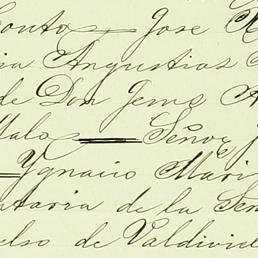 Couto — José
ia Angustias
de Don Jems A
Malo — Señor J
— Ygnacio Mari
taria de la Señ
elso de Valdivie